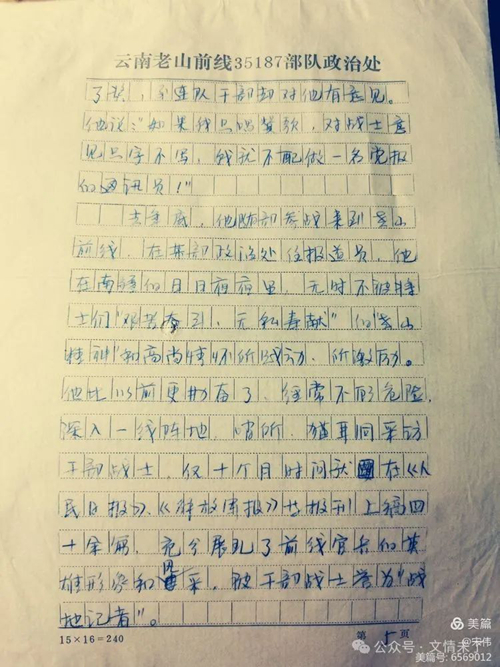 云南老山前线35187部队政治处
了奖，连队干部却对他有意见。
他说："如果我只唱赞歌，对战士意
见只字不写，我就不配做一名党报
的通讯员！"
去年底，他随部参战来到老山
前线，在某部政治处任报道员，他
在南疆的日日夜夜里，无时不被战
士们"艰苦奋斗，无私奉献"的老山
精神和高尚情怀所感动、所激励。
他比以前更勤奋了，经常不顾危险，
深入一线阵地、哨所、猫耳洞采访
干部战士，仅十个月时间就在《人
民日报》、《解放军报》等报刊上稿四
十余篇，充分展现了前线官兵们英
雄形象和风采，被干部战士誉为"战
地记者"。
15×16=240
第 5 页
美篇
@宋伟
公众号·文情未了
美篇号: 6569012